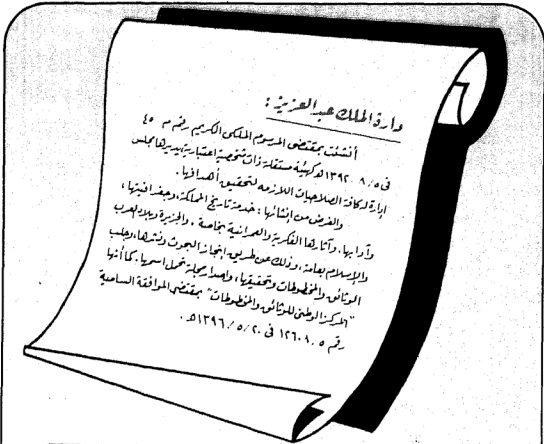 دارة الملك عبد العزيز :
أنشئت بمقتضى المرسوم الملكي الكريم رقم م ٤٥
في ١٣٩٢/٨/٥ هـ كهيئة مستقلة ذات شخصية اعتبارية يديرها مجلس
إدارة له كافة الصلاحيات اللازمة لتحقيق أهدافها .
والغرض من إنشائها : خدمة تاريخ المملكة ، وجغرافيتها ،
وآدابها . وآثارها الفكرية والعمرانية بخاصة ، والجزيرة وبلاد العرب
والإسلام بعامة ، وذلك عن طريق إنجاز البحوث ونشرها ، وجلب
الوثائق والمخطوطات وتحقيقها ، وإصدار مجلة تحمل اسمها . كما أنها
"المركز الوطني للوثائق والمخطوطات" بمقتضى الموافقة السامية
رقم ١٢٦٠٨/٥ في ١٣٩٦/٥/٢٠ هـ .